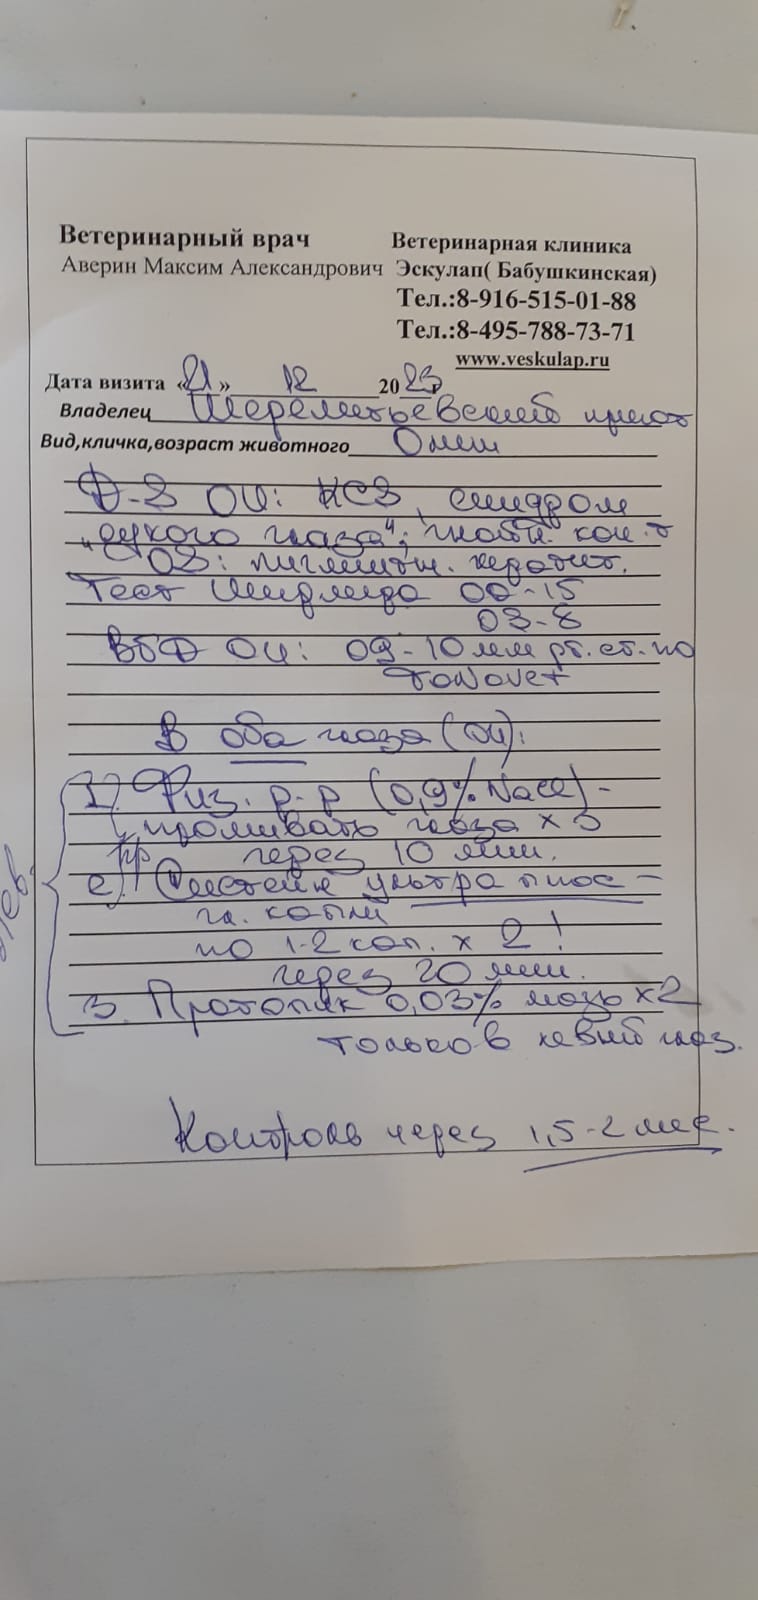 Ветеринарный врач
Аверин Максим Александрович
Ветеринарная клиника
Эскулап( Бабушкинская)
Тел.:8-916-515-01-88
Тел.:8-495-788-73-71
www.veskulap.ru
Дата визита «21» 12 2023
Владелец Шереметьевский приют
Вид,кличка,возраст животного
Д-З ОИ: КСЗ, синдром
"сухого глаза";
О3: пигментн. кератит.
Тест Ширмера 00-15
03-8
ВГД ОИ: 09-10 мм рт. ст. по
Tonovet
В оба глаза (ОИ):
1). Физ. р-р (0,9% NaCl) -
промывать глаза х 3
через 10 мин.
2). Систейн ультра плюс -
гл. капли
по 1-2 кап. х 2!
через 20 мин.
3. Протопик 0,03% мазь х2
только в левый глаз.
Контроль через 1,5-2 мес.